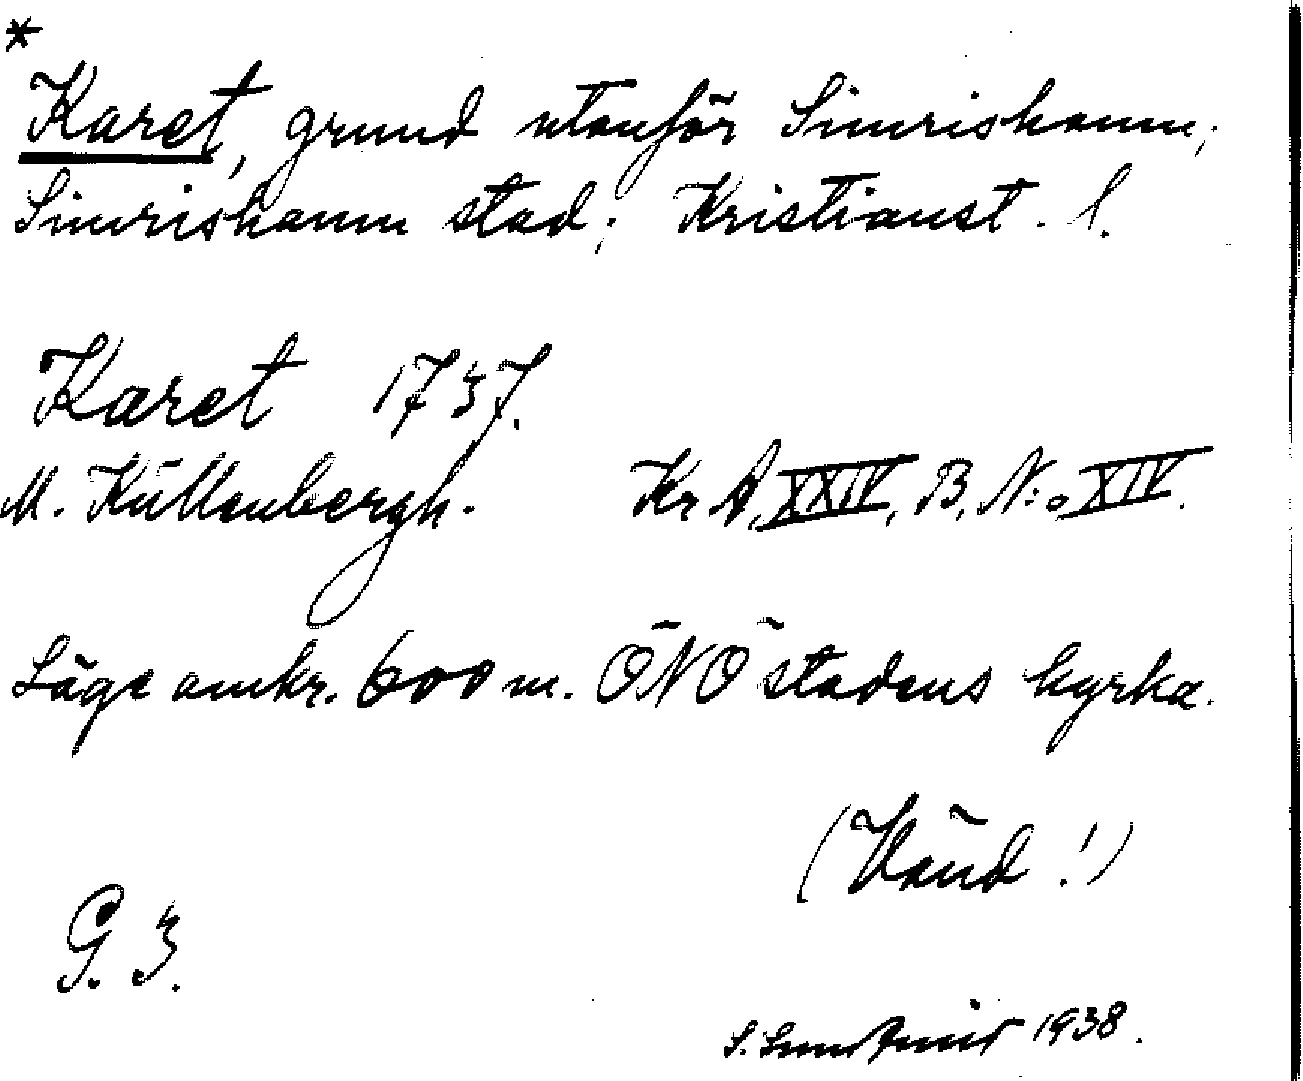 *
Karet, grund utanför Simrishamn,
Simrishamn stad; Kristianst. l.
Karet 1737.
M. Küllenbergh. Kr A, XXIV, B, N:o XIV.
Läge omkr. 600 m. ÖNÖ stadens kyrka.
(Vänd!)
G. 3.
S. 1938.